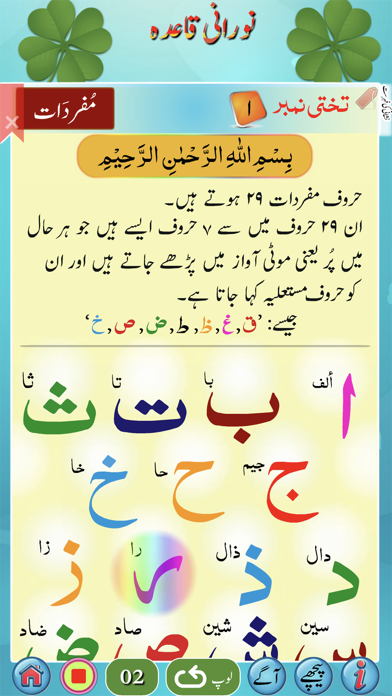 نورانی قاعدہ
تختی نمبر ۱
مُفردَات
بِسْمِ اللهِ الرَّحْمٰنِ الرَّحِيْمِ
حروف مفردات ۲۹ ہوتے ہیں۔
ان ۲۹ حروف میں سے ۷ حروف ایسے ہیں جو ہر حال
میں پُر یعنی موٹی آواز میں پڑھے جاتے ہیں اور ان
کو حروف مستعلیہ کہا جاتا ہے۔
جیسے: ’ق, غ, ظ, ط, ض, ص, خ‘
الف با تا ثا
ا ب ت ث
جیم حا خا
ج ح خ
دال ذال را زا
د ذ ر ز
سین شین صاد ضاد
س ش ص ض
پیچھے آگے لوپ 02